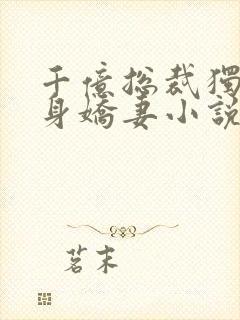 千億總裁獨
身嬌妻小說
茗末